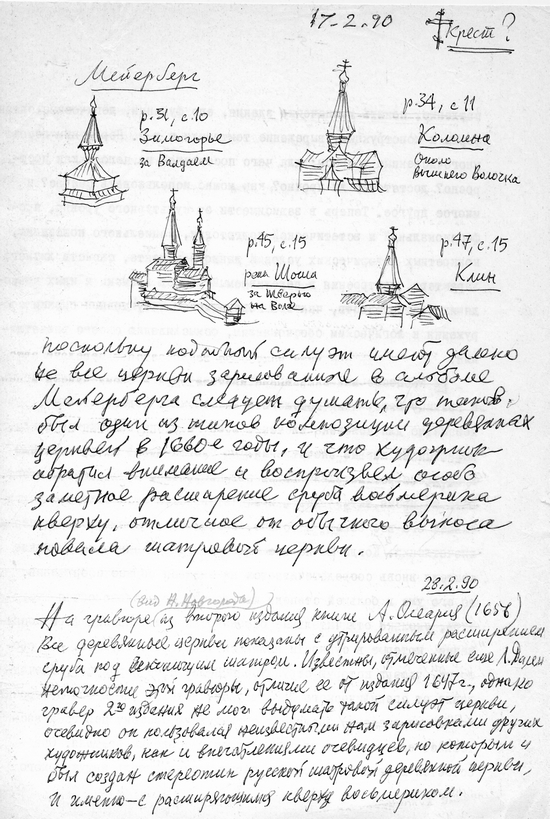 17-2.90
Крест?
Мейерберг
р.31, с.10
Зимогорье
за Валдаем
р.34, с 11
Коломна
Около
Вышнего Волочка
р.45, с.15
река Шоша
за Тверью
на Волге
р.47, с.15
Клин
Поскольку подобный силуэт имеют далеко
не все церкви зарисованные в альбоме
Мейерберга следует думать, что таков
был один из типов композиции деревянных
церквей в 1660е годы, и что художник
обратил внимание и воспроизвел особо
заметное расширение сруба восьмерика
кверху, отличное от обычного выноса
повала шатровой церкви.
23.2.90
(вид Н. Новгорода)
На гравюре из второго издания книги А. Олеария (1656)
Все деревянные церкви показаны с утрированным расширением
сруба под венчающим шатром. Известны, отмеченные еще
неточности этой гравюры, отличие ее от издания 1647г., однако
гравер 2го издания не мог выдумать такой силуэт церкви,
очевидно он пользовался неизвестными нам зарисовками других
художников, как и впечатлениями очевидцев, по которым и
был создан стереотип русской шатровой деревянной церкви,
и именно – с расширяющимся кверху восьмериком.